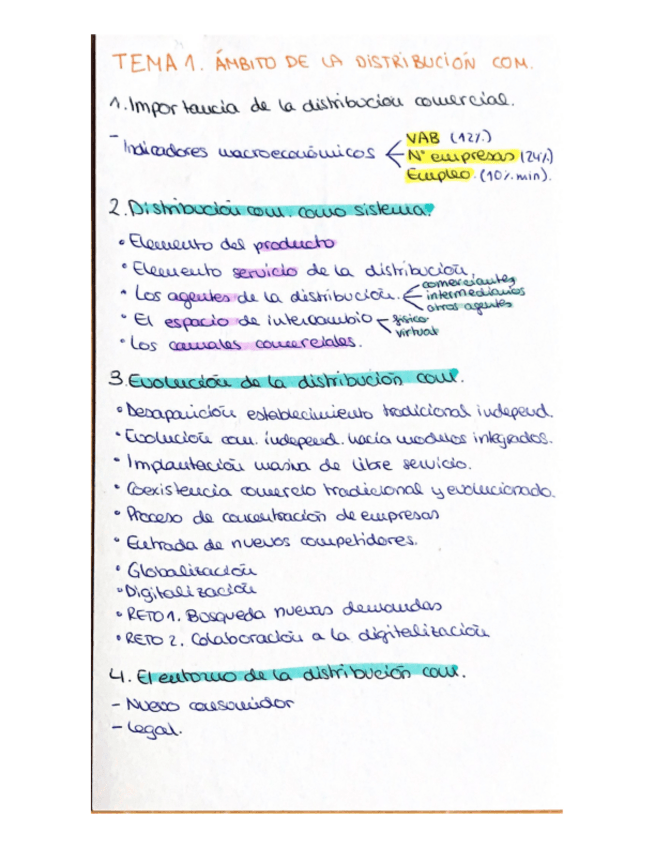 TEMA 1. ÁMBITO DE LA DISTRIBUCIÓN COM.
1. Importancia de la distribución comercial.
- Indicadores macroeconómicos
VAB (12%)
Nº empresas (24%)
Empleo. (10% min).
2. Distribución com. como sistema.
• Elemento del producto
• Elemento servicio de la distribución.
• Los agentes de la distribución.
comerciantes
intermediarios
otros agentes
• El espacio de intercambio
físico
virtual
• Los canales comerciales.
3. Evolución de la distribución com.
• Desaparición establecimiento tradicional independ.
• Evolución com. independ. hacia modelos integrados.
• Implantación masiva de libre servicio.
• Coexistencia comercio tradicional y evolucionado.
• Proceso de concentración de empresas
• Entrada de nuevos competidores.
• Globalización
• Digitalización
• RETO 1. Bosqueda nuevas demandas
• RETO 2. Colaboración a la digitelización
4. El entorno de la distribución com.
- Nuevo consumidor
- Legal.